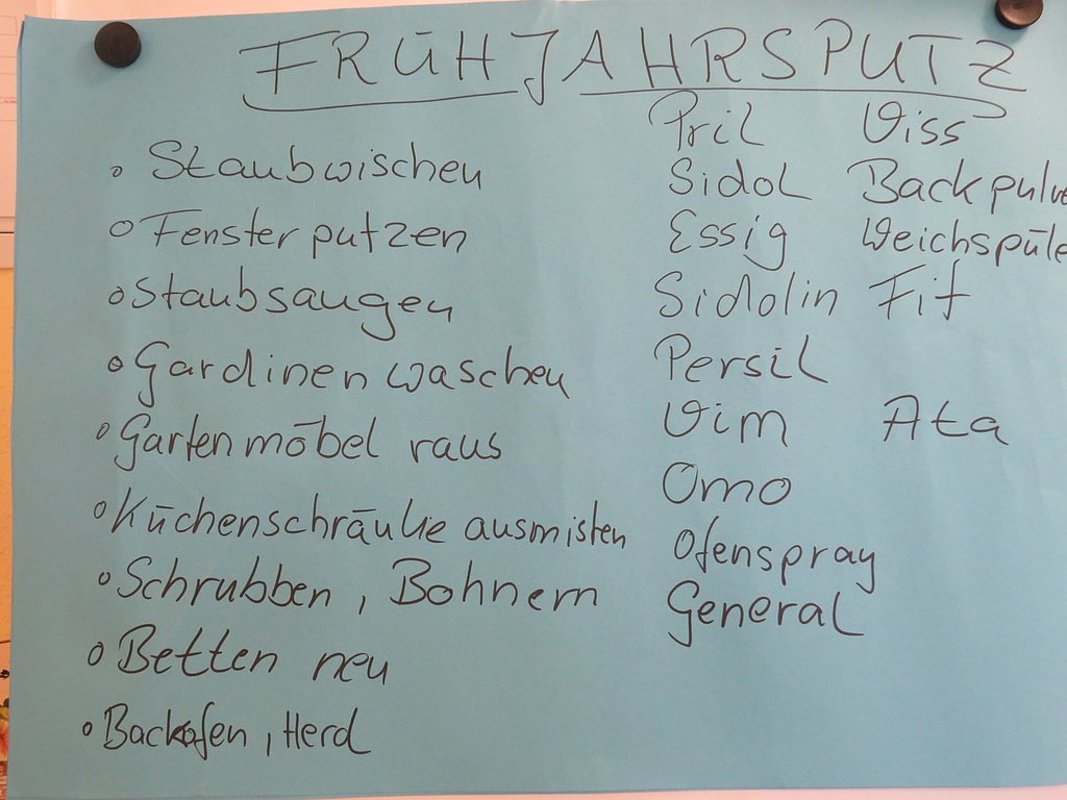 FRÜHJAHRSPUTZ
Staubwischen
Fenster putzen
Staubsaugen
Gardinen waschen
Gartenmöbel raus
Küchenschränke ausmisten
Schrubben, Bohnern
Betten neu
Backofen, Herd
Pril
Sidol
Essig
Sidolin
Persil
Vim
Omo
Ofenspray
General
Viss
Backpulve
Weichspüle
Fit
Ata